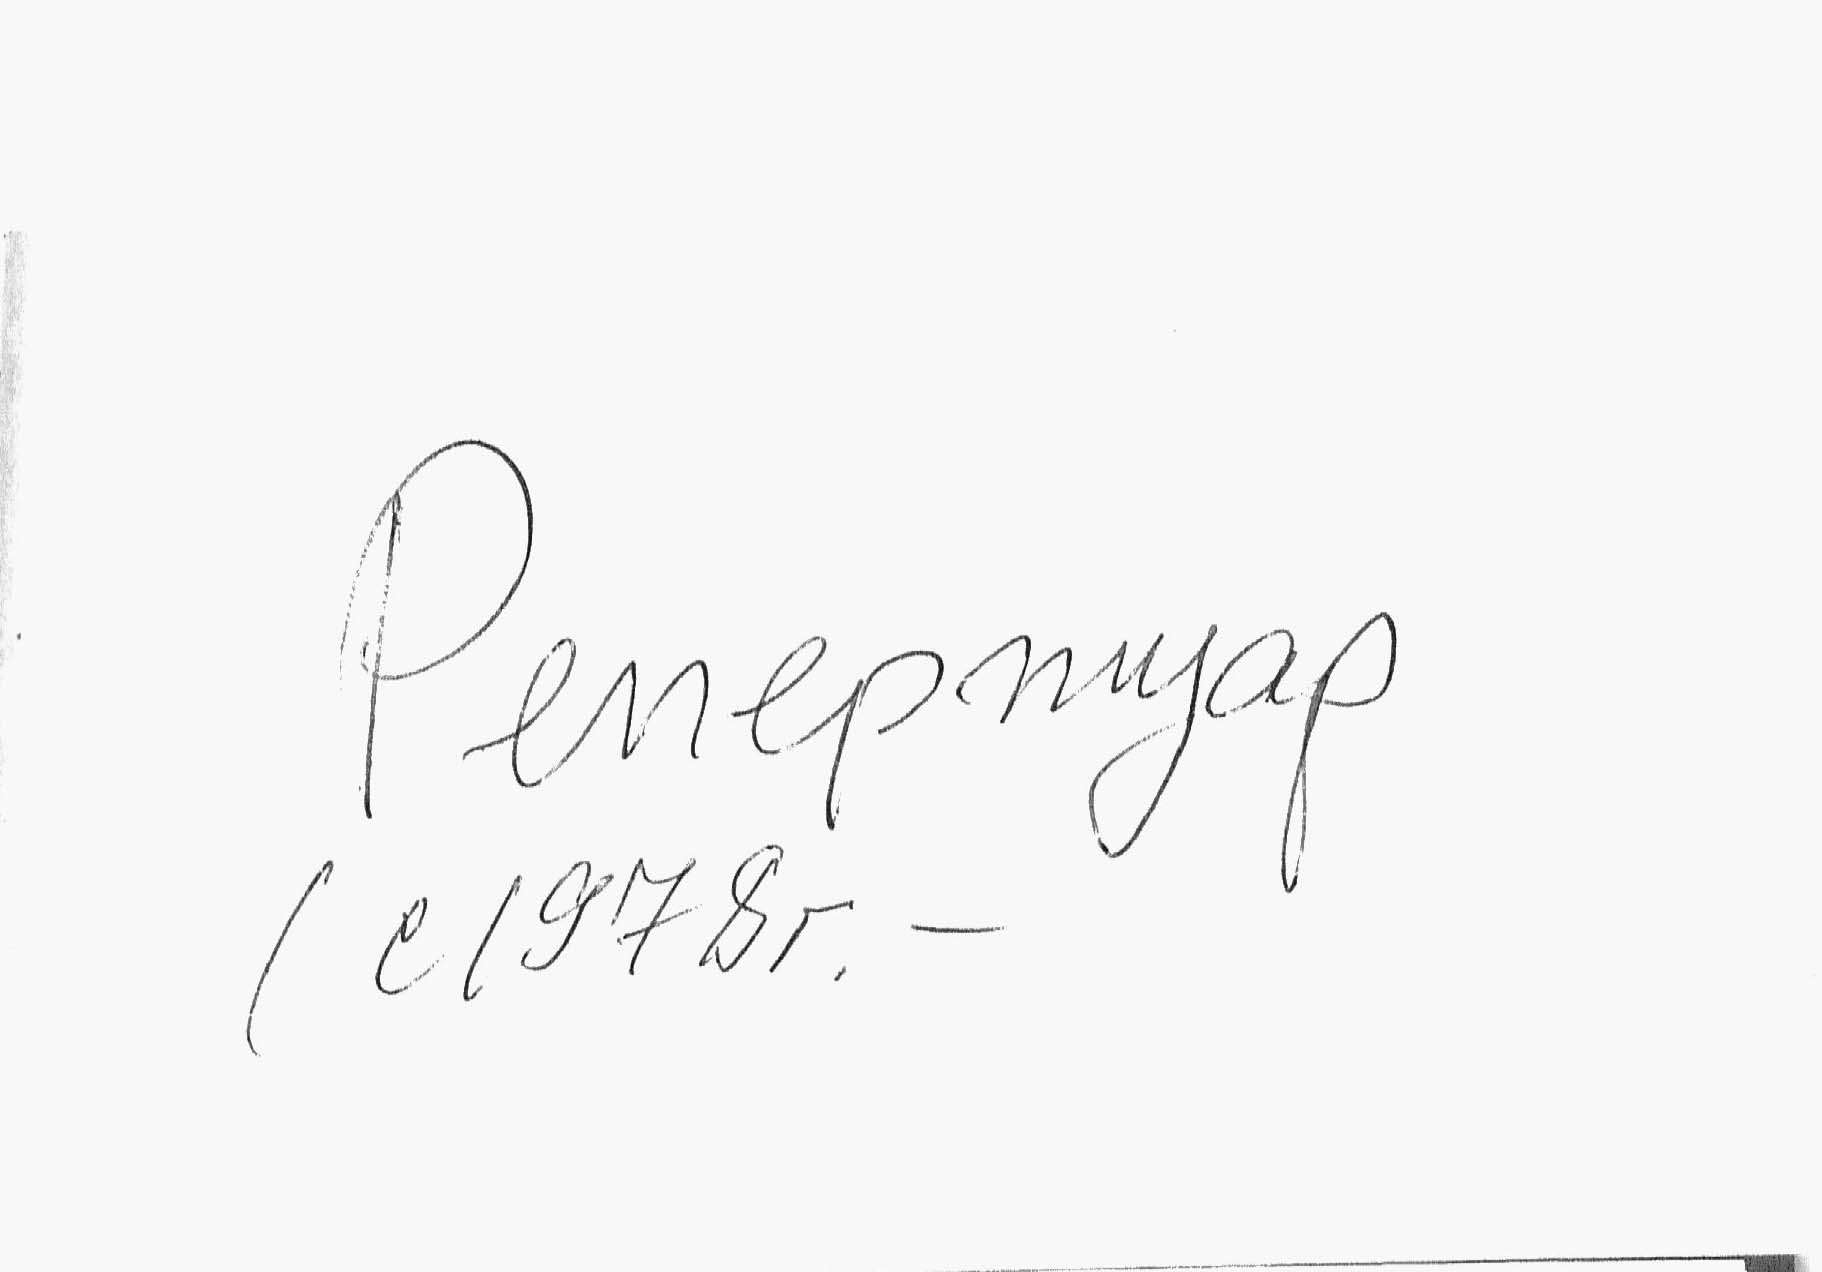 Репертуар
( с 1978г. —